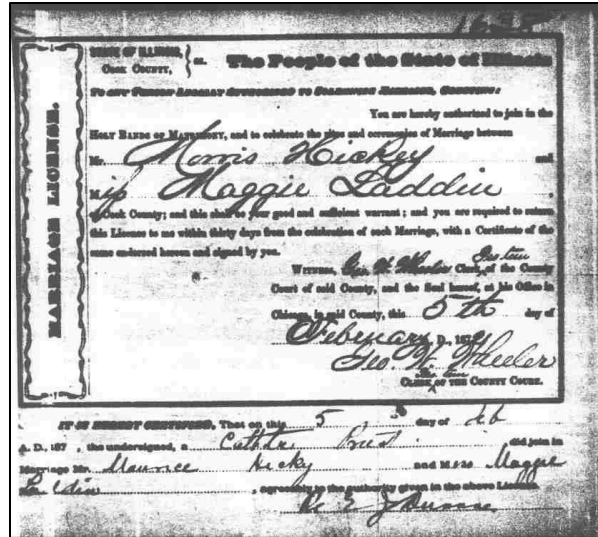 MARRIAGE LICENSE.
STATE OF ILLINOIS, } ss. The People of the State of Illinois
COOK COUNTY,
To any Person Legally Authorized to Solemnize Marriage, Greeting:
You are hereby authorized to join in the
HOLY BANDS OF MATRIMONY, and to celebrate the rites and ceremonies of Marriage between
Mr. Morris Hickey and
Miss Maggie Laddin,
of Cook County; and this shall be your good and sufficient warrant; and you are required to return
this License to me within thirty days from the celebration of such Marriage, with a Certificate of the
same endorsed hereon and signed by you.
WITNESS, Geo. W. Wheeler Clerk of the County
Court of said County, and the Seal hereof, at his Office in
Chicago, in said County, this 5th day of
February A. D., 187
Geo. W. Wheeler
CLERK OF THE COUNTY COURT.
IT IS HEREBY CERTIFIED, That on this 5 day of Feb
A. D., 187 , the undersigned, a Catholic Priest did join in
Marriage Mr. Maurice Hicky and Miss Maggie
, agreeably to the authority given in the above License.